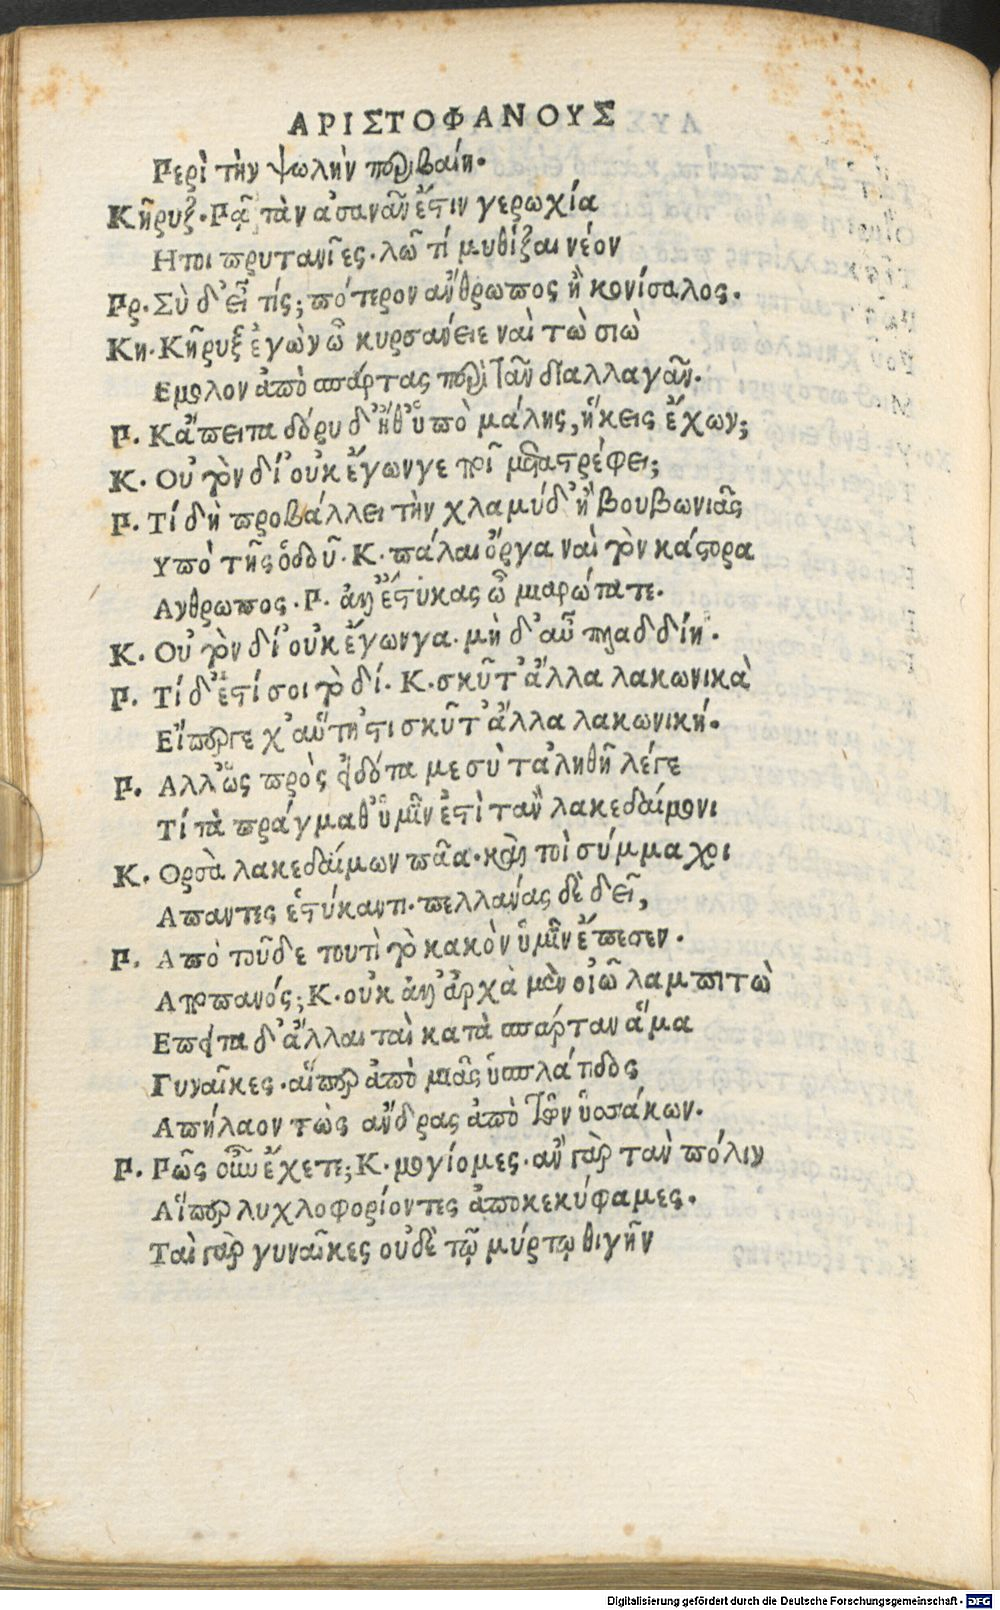 ΑΡΙΣΤΟΦΑΝΟΥΣ
Περὶ τὴν ψωλὴν περιβαίη.
Κῆρυξ. Πᾷ τὰν ἀσανᾶν ἐστιν γερωχία
Ητοι πρυτανῖες. λῶ τί μυθίξαι νέον
Πρ. Σὺ δ' εἶ τίς; πότερον ἄνθρωπος ἢ κονίσαλος.
Κη. Κῆρυξ ἐγὼν ὦ κυρσάνθιε ναὶ τὼ σιὼ
Εμολον ἀπὸ σπάρτας περὶ τᾶν διαλλαγᾶν.
Π. Κἄπειτα δόρυ δ' ἤθ' ὑπὸ μάλης, ἥκεις ἔχων;
Κ. Οὐ τὸν δί' οὐκ ἔγωνγε ποῖ μεταστρέφει;
Π. Τί δὴ προβάλλει τὴν χλαμύδ' ἢ βουβωνιᾷς
Υπὸ τῆς ὁδοῦ. Κ. πάλαι ὄργα ναὶ τὸν κάστορα
Ανθρωπος. Π. ἀλλ' ἔστυκας ὦ μιαρώτατε.
Κ. Οὐ τὸν δί' οὐκ ἔγωνγα. μὴ δ' αὖ πλαδδίη.
Π. Τί δ' ἐστί σοι τὸ δί. Κ. σκῦτ' ἄλλα λακωνικὰ
Εἴπερ γε χ' αὕτη ἐστι σκῦτ' ἄλλα λακωνική.
Π. Αλλ' ὣς πρὸς εἰδότα με σὺ τἀληθῆ λέγε
Τί τὰ πράγμαθ' ὑμῖν ἐστὶ τἂν λακεδαίμονι
Κ. Ορσὰ λακεδαίμων πᾶα. καὶ τοὶ σύμμαχοι
Απαντες ἐστύκαντι. πελλάνας δὲ δεῖ,
Π. Απὸ τοῦδε τουτὶ τὸ κακὸν ὑμῖν ἔπεσεν.
Απὸ πανός; Κ. οὐκ ἀλλ' ἀρχὰ μὲν οἰῶ λαμπιτὼ
Επειτα δ' ἄλλαι ταὶ κατὰ σπάρταν ἅμα
Γυναῖκες. αἵπερ ἀπὸ μιᾶς ὑσπλάτιδος
Απήλαον τὼς ἄνδρας ἀπὸ τῶν ὑσσάκων.
Π. Πῶς οὖν ἔχετε; Κ. μογίομες. ἂν γὰρ τὰν πόλιν
Αἵπερ λυχλοφορίοντες ἀποκεκύφαμες.
Ταὶ γὰρ γυναῖκες οὐδὲ τῷ μύρτῳ θιγῆν
Digitalisierung gefördert durch die Deutsche Forschungsgemeinschaft - DFG